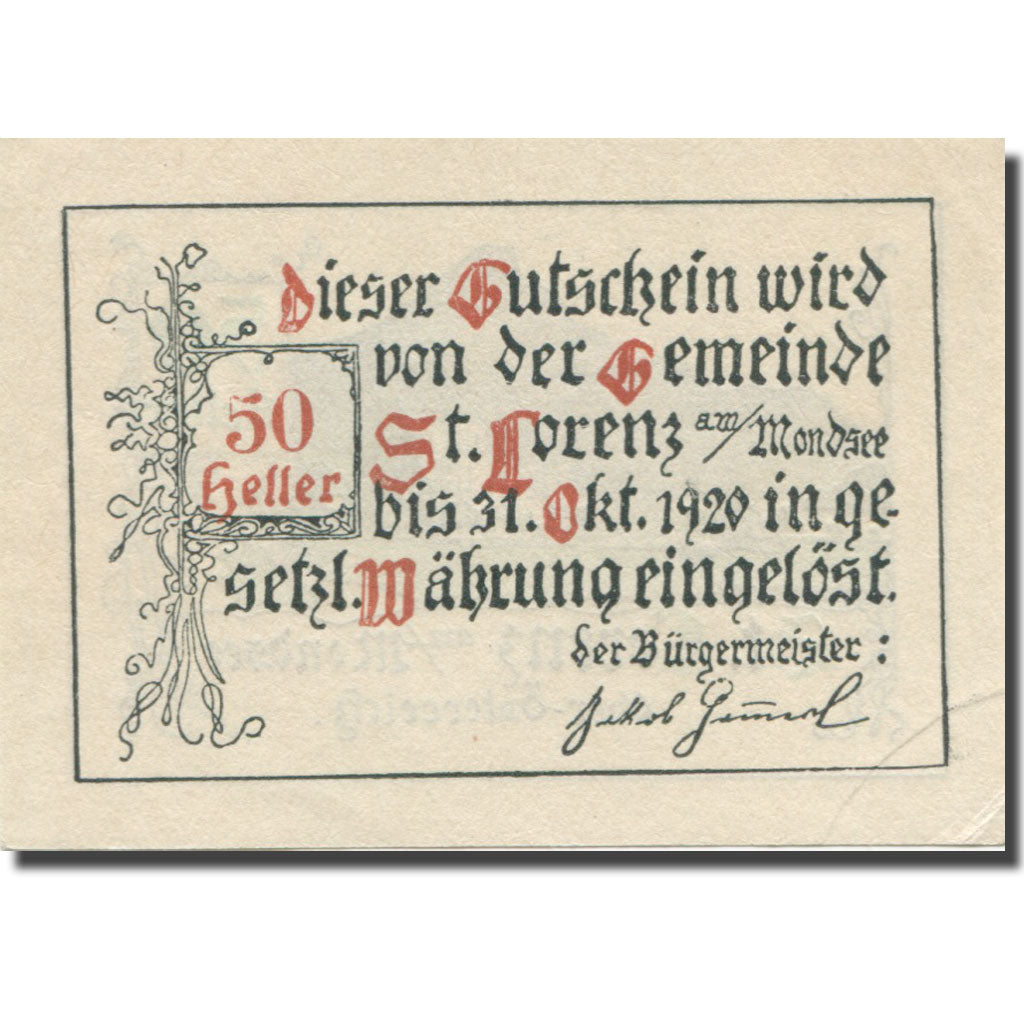 Dieser Gutschein wird
von der Gemeinde
50
Heller
St. Lorenz am/Mondsee
bis 31. Okt. 1920 in ge-
setzl. Währung eingelöst.
der Bürgermeister:
Jakob